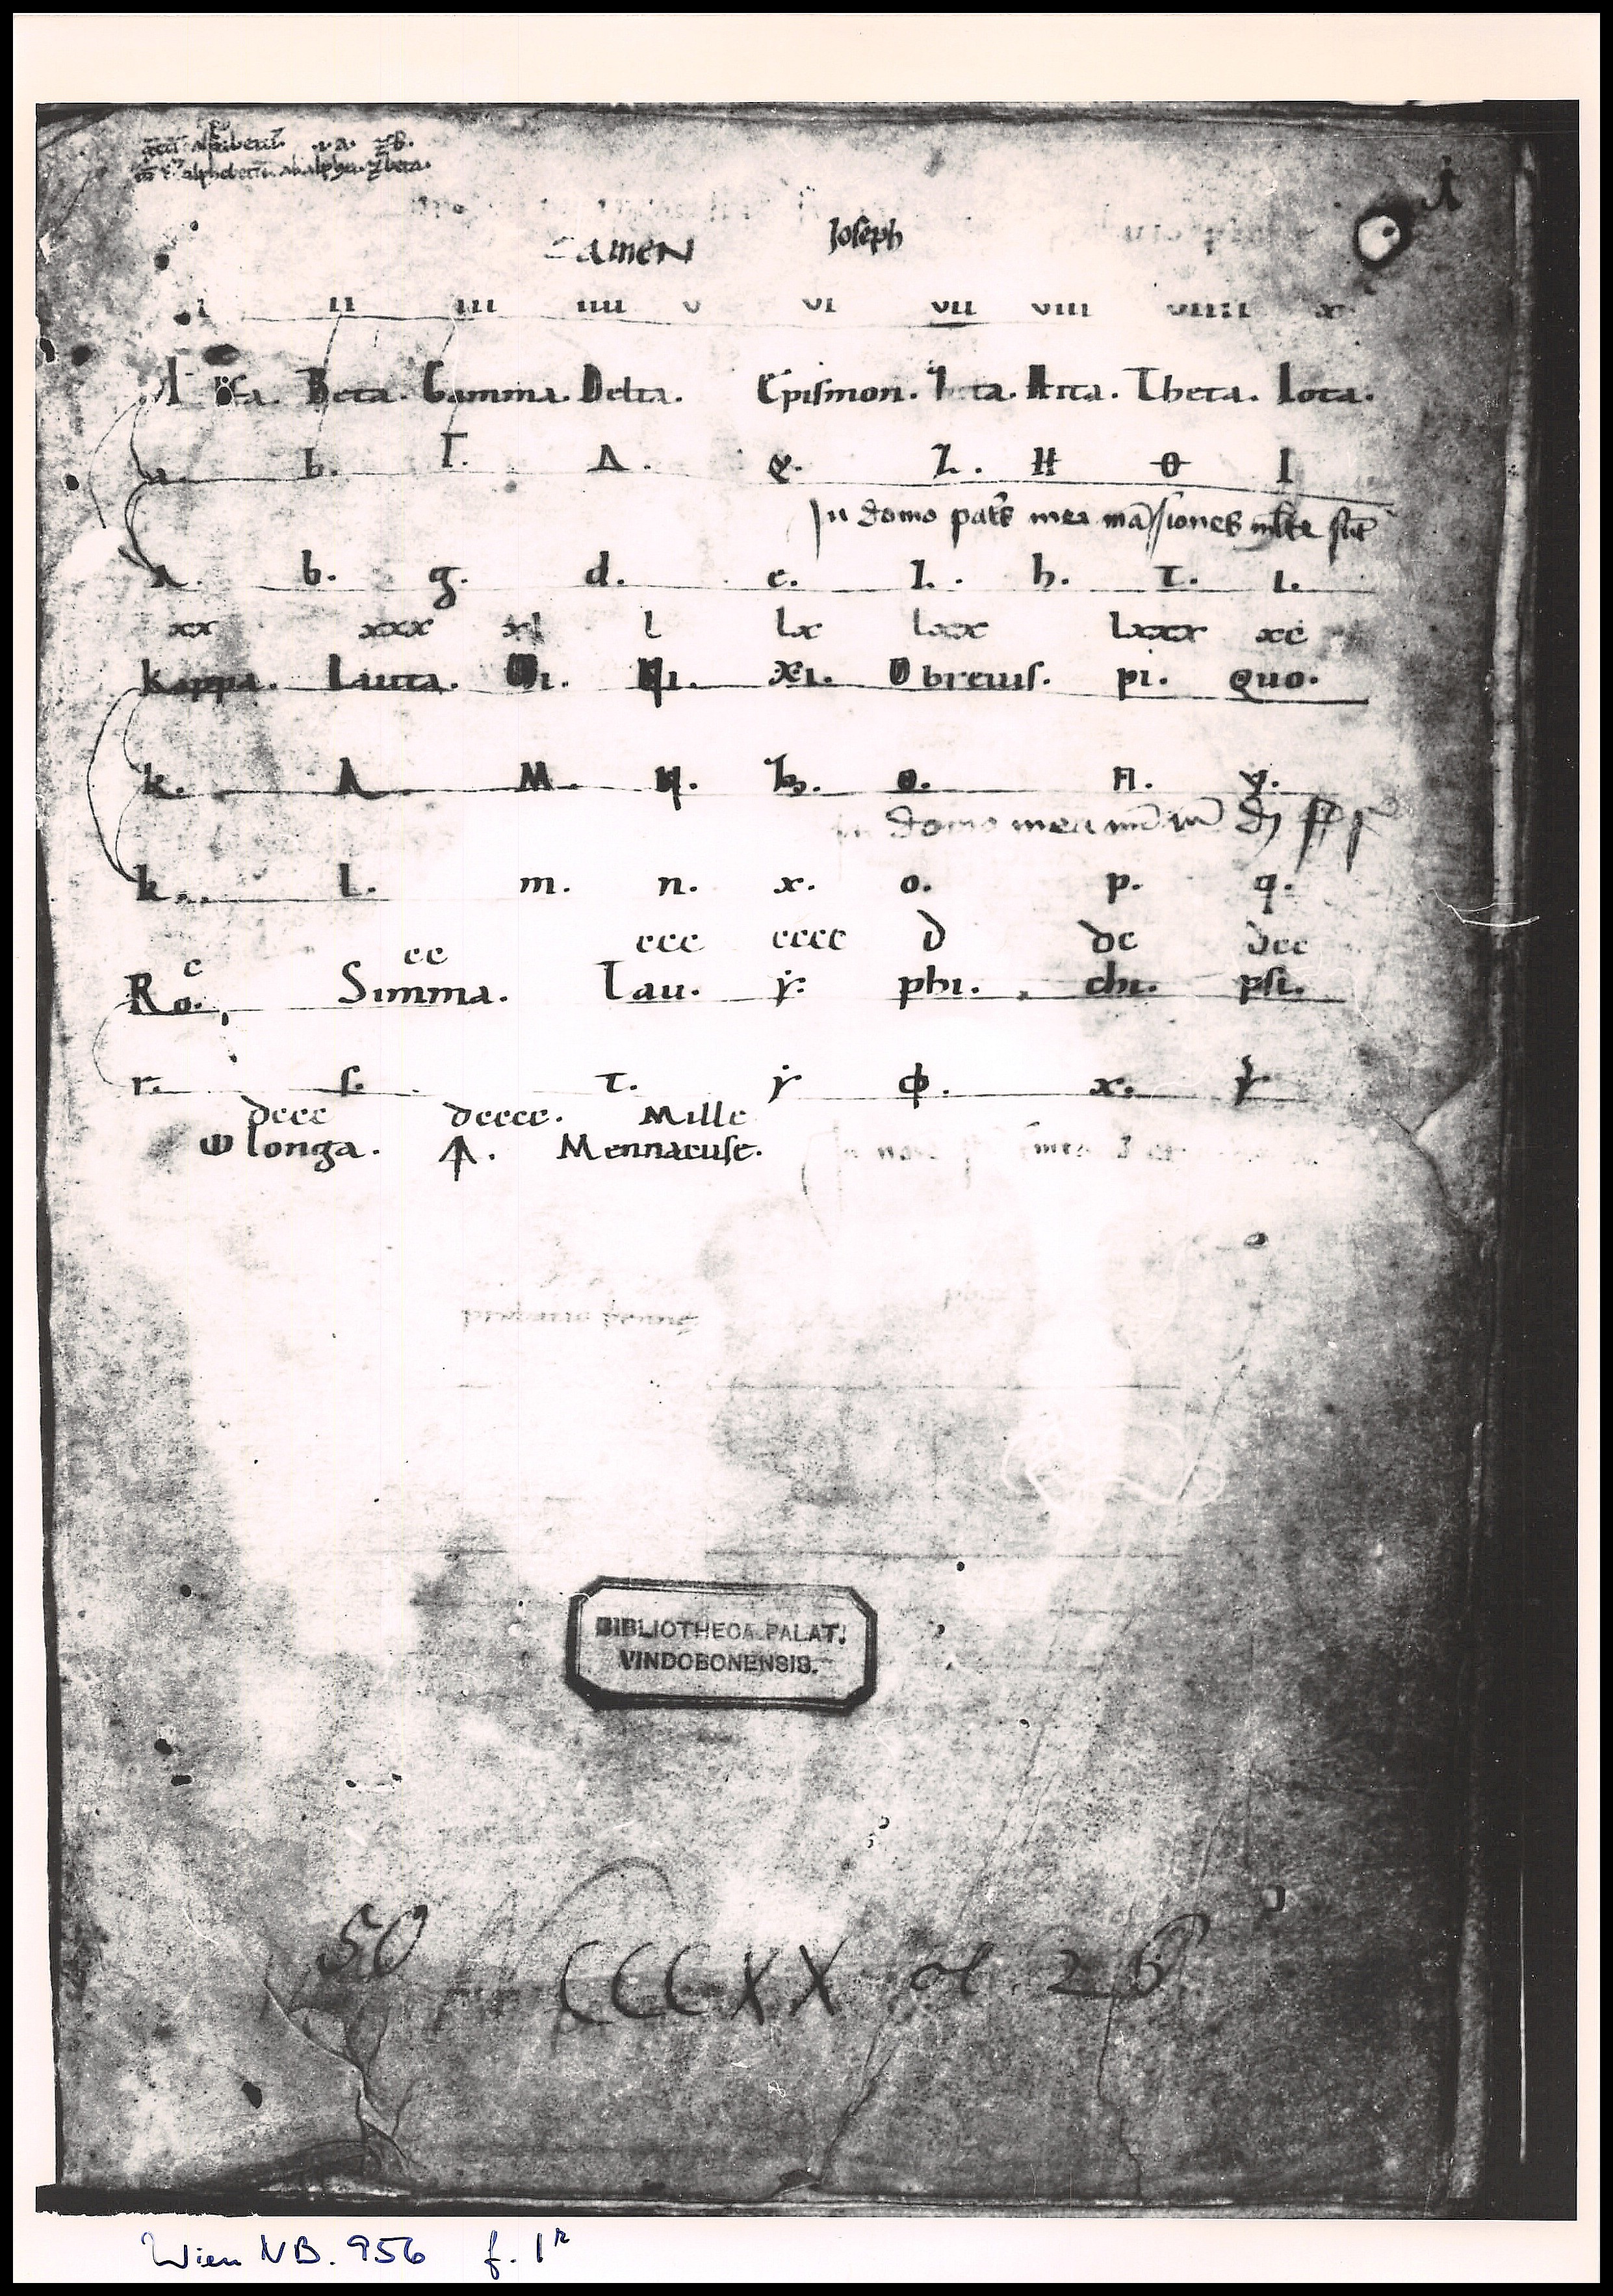 alphabetū ab alpha. ⁊ beta.
amen Joseph
i ii iii iiii v vi vii viii viiii x
Beta. Gamma. Delta. Epismon. Theta. Iota.
a. b. Γ. Δ. e. Z. H Θ I
In domo pat̄s mea mā//siones ml̄te sūt
a. b. g. d. e. z. h. t. i.
xx xxx xl l lx lxx lxxx xc
kappa. Lauta. Mi. Ni. xi. O breuis. pi. quo.
k. Λ. M. N. o. Π. y.
in domo mea
k. l. m. n. x. o. p. q.
c cc ccc cccc d dc dcc
Ro. Simma. Tau. ẏ. phi. chi. psi.
r. s. t. ẏ φ. x.
dccc dcccc. Mille
ω longa. ↑. Mennacuse.
BIBLIOTHECA PALAT.
VINDOBONENSIS.
50 CCCXX ol. 26
Wien NB. 956 f. 1r